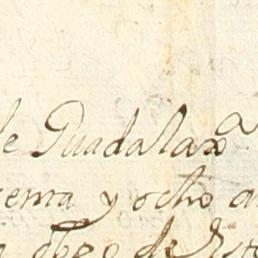 de Guadalaxª
renta y ocho a
obpo de este